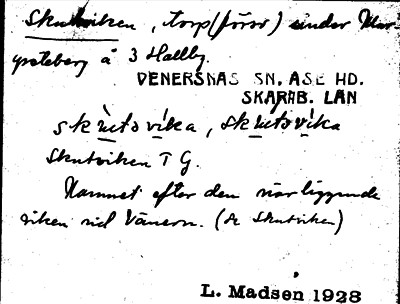 Skutviken, torp (förr) under Mar-
greteberg å 3 Hallby.
VENERSNÄS SN. ÅSE HD.
SKARAB. LÄN
skùtsvíka, skùtsvíka
Skutviken T G.
Namnet efter den närliggande
viken vid Vänern. (se Skutviken)
L. Madsen 1928